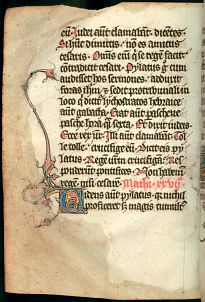 eū. Iudei aūt clamabāt. dicētes.
Si hūc dimittis. nō es amicus
cesaris. Omīs eī qui se regē facit
cōtradicit cesari. Pylatus g̃ cum
audisset hos sermones. adduxit
foras ihm. ⁊ sedit pro tribunali in
loco q̇ dicit lychostratos hebraice
aūt gabatha. Erat aūt parasceue
pasche hora q̃si sexta. Et dixit iudeis.
Ecce rex ūr. Illi aūt clamabāt. Tol
le tolle. crucifige eū. Dixit eis py
latus. Regē ūrm crucifigā. Res
ponderūt pontifices. Non habem⁹
regē nisi cesarē. Mathi. xxvij.
Uidens aūt pylatus. q̇ nichil
proficeret. s; magis tumult⁹